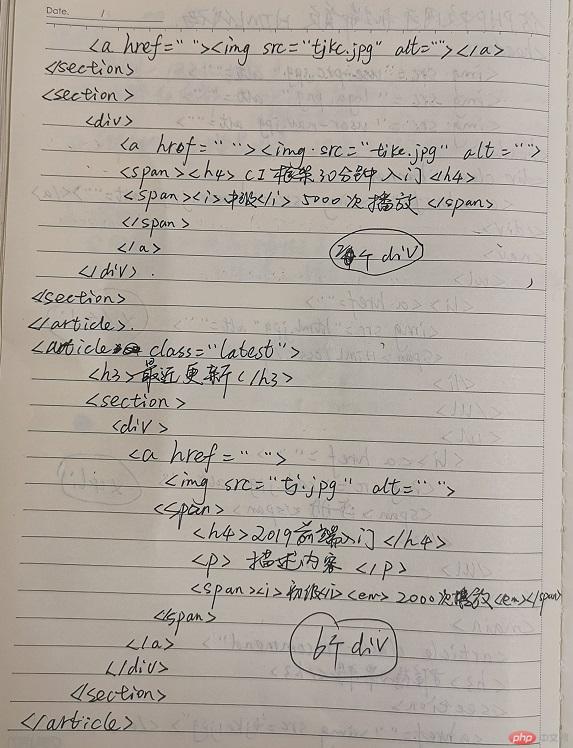 Date. /
<a href=" "><img src="tjkc.jpg" alt=""></a>
</section>
<section>
<div>
<a href=" "><img src="tike.jpg" alt="">
<span><h4> CI框架30分钟入门<h4>
<span><i>中级</i> 5000次播放 </span>
</span>
</a>
个div
</div>
</section>
</article>
<article class="latest">
<h3>最近更新</h3>
<section>
<div>
<a href=" ">
<img src="tj.jpg" alt=" ">
<span>
<h4>2019前端入门</h4>
<p> 描述内容 </p>
<span><i>初级</i><em>2000次播放<em></span>
</span>
6个div
</a>
</div>
</section>
</article>
php